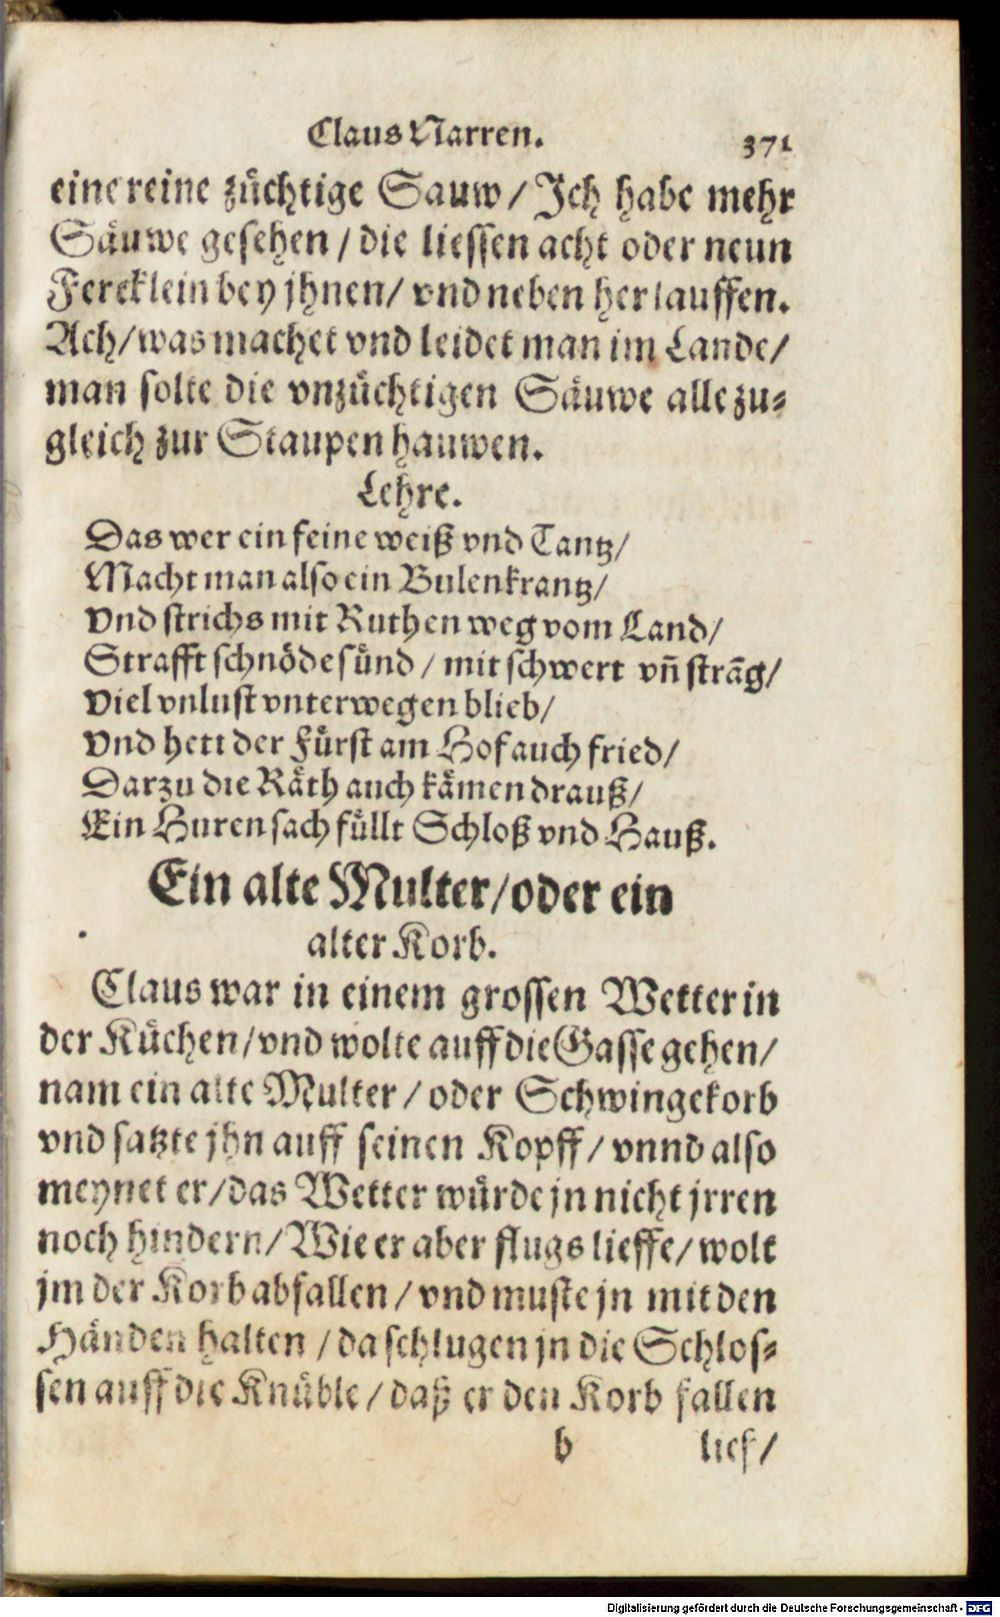 Claus Narren. 371
eine reine züchtige Sauw / Ich habe mehr
Säuwe gesehen / die liessen acht oder neun
Fercklein bey jhnen / vnd neben her lauffen.
Ach / was machet vnd leidet man im Lande /
man solte die vnzüchtigen Säuwe alle zu-
gleich zur Staupen hauwen.
Lehre.
Das wer ein feine weiß vnd Tantz /
Macht man also ein Bulenkrantz /
Vnd strichs mit Ruthen weg vom Land /
Strafft schnöde sünd / mit schwert vñ strãg /
Viel vnlust vnterwegen blieb /
Vnd hett der Fürst am Hof auch fried /
Darzu die Räth auch kämen drauß /
Ein Huren sach füllt Schloß vnd Hauß.
Ein alte Multer / oder ein
alter Korb.
Claus war in einem grossen Wetter in
der Küchen / vnd wolte auff die Gasse gehen /
nam ein alte Multer / oder Schwingekorb
vnd satzte jhn auff seinen Kopff / vnnd also
meynet er / das Wetter würde jn nicht jrren
noch hindern / Wie er aber flugs lieffe / wolt
jm der Korb abfallen / vnd muste jn mit den
Händen halten / da schlugen jn die Schlos-
sen auff die Knüble / daß er den Korb fallen
b lies /
Digitalisierung gefördert durch die Deutsche Forschungsgemeinschaft - DFG